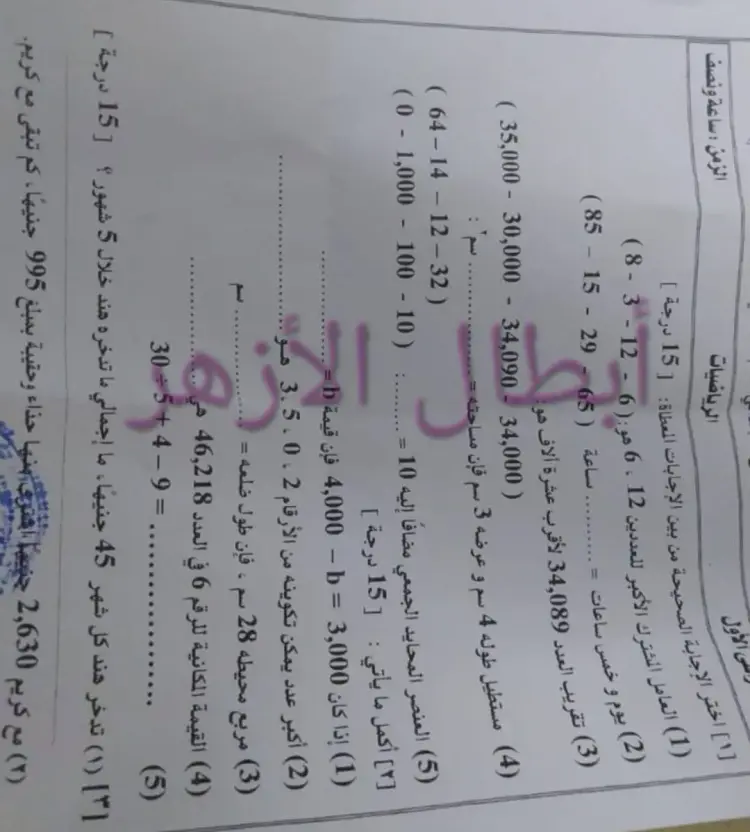 الزمن: ساعة ونصف
الرياضيات
الأول
[١] اختر الإجابة الصحيحة من بين الإجابات المعطاة: [ 15 درجة ]
(1) العامل المشترك الأكبر للعددين 12 ، 6 هو: ( 6 - 12 - 3 - 8 )
(2) يوم و خمس ساعات = .......... ساعة ( 65 - 29 - 15 - 85 )
(3) تقريب العدد 34,089 لأقرب عشرة آلاف هو:
( 34,000 - 34,090 - 30,000 - 35,000 )
(4) مستطيل طوله 4 سم و عرضه 3 سم فإن مساحته = .......... سم٢ :
( 32 – 12 – 14 – 64 )
(5) العنصر المحايد الجمعي مضافًا إليه 10 = .......... : ( 10 - 100 - 1,000 - 0 )
[٢] أكمل ما يأتي : [ 15 درجة ]
(1) إذا كان 4,000 – b = 3,000 فإن قيمة b = ..........
(2) أكبر عدد يمكن تكوينه من الأرقام 2 ، 0 ، 5 ، 3 هـو ..........
(3) مربع محيطه 28 سم ، فإن طول ضلعه = .......... سم
(4) القيمة المكانية للرقم 6 في العدد 46,218 هي ..........
(5) 30 ÷ 5 + 4 – 9 = ..........
[٣] (١) تدخر هند كل شهر 45 جنيهًا، ما إجمالي ما تدخره هند خلال 5 شهور ؟ [ 15 درجة ]
(٢) مع كريم 2,630 جنيهًا اشترى منها حذاء وحقيبة بمبلغ 995 جنيهًا، كم تبقى مع كريم.
أبطال الأزهر